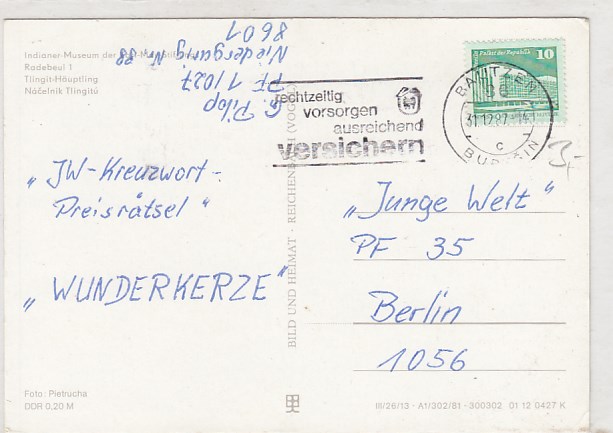 Indianer-Museum der
Radebeul 1
Tlingit-Häuptling
Náčelník Tlingitů
G. Pilop
PF 1/027
Niedergurig Nr. 88
8601
„JW-Kreuzwort-
Preisrätsel"
„WUNDERKERZE"
Foto: Pietrucha
DDR 0,20 M
BILD UND HEIMAT · REICHENBACH (VOGTL)
rechtzeitig
vorsorgen
ausreichend
versichern
Palast der Republik 10
DDR
BAUTZEN
31.12.87
c
BUDYŠIN
3,-
„Junge Welt"
PF 35
Berlin
1056
III/26/13 · A1/302/81 · 300302 01 12 0427 K